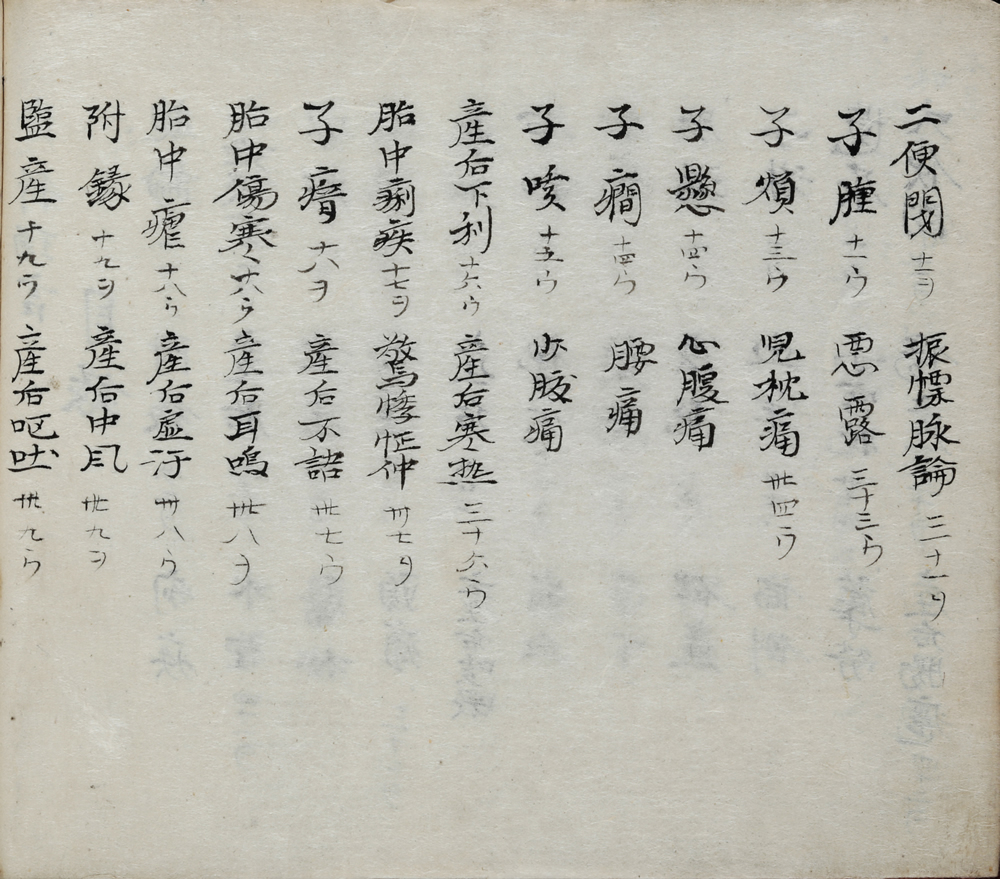 二便閉 十一ヲ 振慄脉論 三十一ヲ
子腫 十一ウ 悪露 三十三ウ
子煩 十三ウ 児枕痛 卅四ウ
子懸 十四ウ 心腹痛
子癇 十四ウ 腰痛
子咳 十五ウ 少腹痛
産后下利 十六ウ 産后寒熱 三十六ウ
胎中痢疾 十七ヲ 驚悸怔忡 卅七ヲ
子瘖 十八ヲ 産后不語 卅七ウ
胎中傷寒 十八ウ 産后耳鳴 卅八ヲ
胎中瘧 十八ウ 産后虚汗 卅八ウ
附録 十九ヲ 産后中風 卅九ヲ
臨産 十九ウ 産后呕吐 卅九ウ